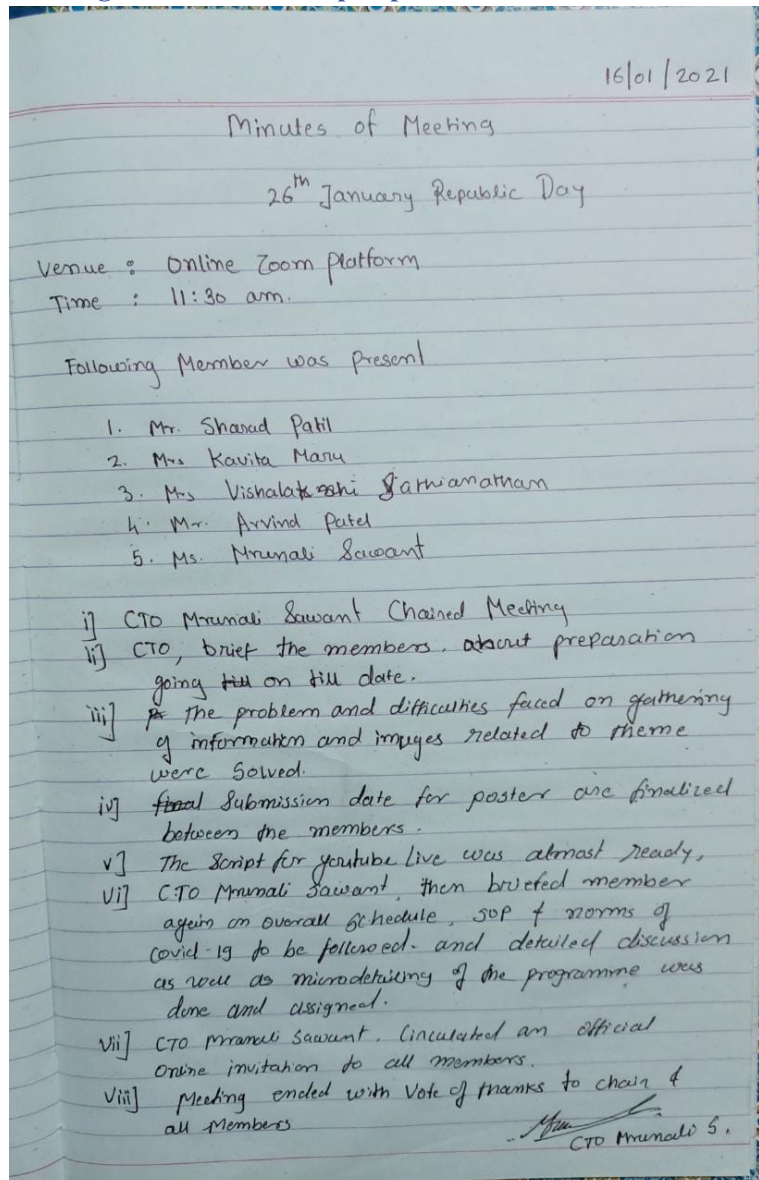 16/01/2021
Minutes of Meeting
26th January Republic Day
Venue : Online Zoom Platform
Time : 11:30 am.
Following Member was Present
1. Mr. Sharad Patil
2. Mrs Kavita Maru
3. Mrs Vishalakshi Sathianathan
4. Mr. Arvind Patel
5. Ms. Mrunali Sawant
i] CTO Mrunali Sawant Chaired Meeting
ii] CTO, brief the members. about preparation
going till on till date.
iii] the problem and difficulties faced on gathering
of information and images related to theme
were Solved.
iv] final Submission date for poster are finalized
between the members.
v] The Script for youtube Live was almost ready,
vi] CTO Mrunali Sawant, then briefed member
again on overall Schedule, SOP & norms of
covid-19 to be followed. and detailed discussion
as well as microdetailing of the programme was
done and assigned.
vii] CTO Mrunali Sawant. Circulated an official
Online invitation to all members.
viii] Meeting ended with Vote of thanks to chair &
all Members
CTO Mrunali S.